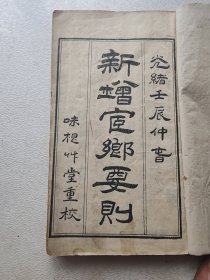 光緒壬辰仲春
新增宦鄉要則
味槑艸堂重校